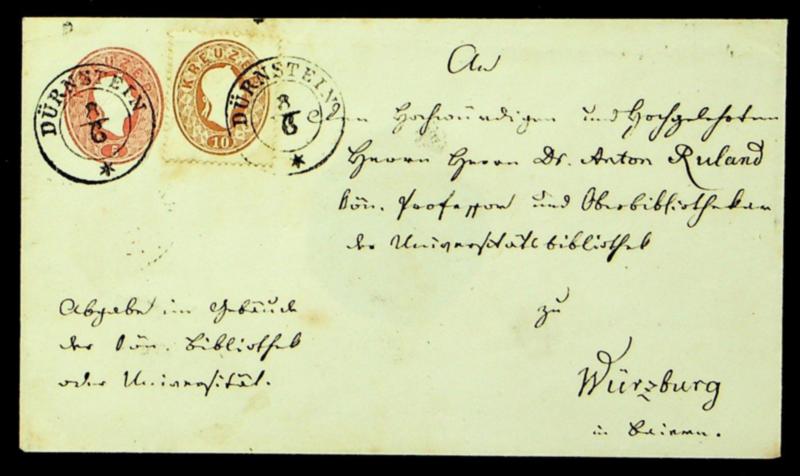 KREUZER
KREUZER
10
DÜRNSTEIN
8/6
DÜRNSTEIN
8/6
An
den Hochwürdigen und Hochgelehrten
Herrn Herrn Dr. Anton Ruland
kön. Professor und Oberbibliothekar
der Universitätsbibliothek
zu
Würzburg
in Baiern.
Abgabe im Gebäude
der kön. Bibliothek
oder Universität.